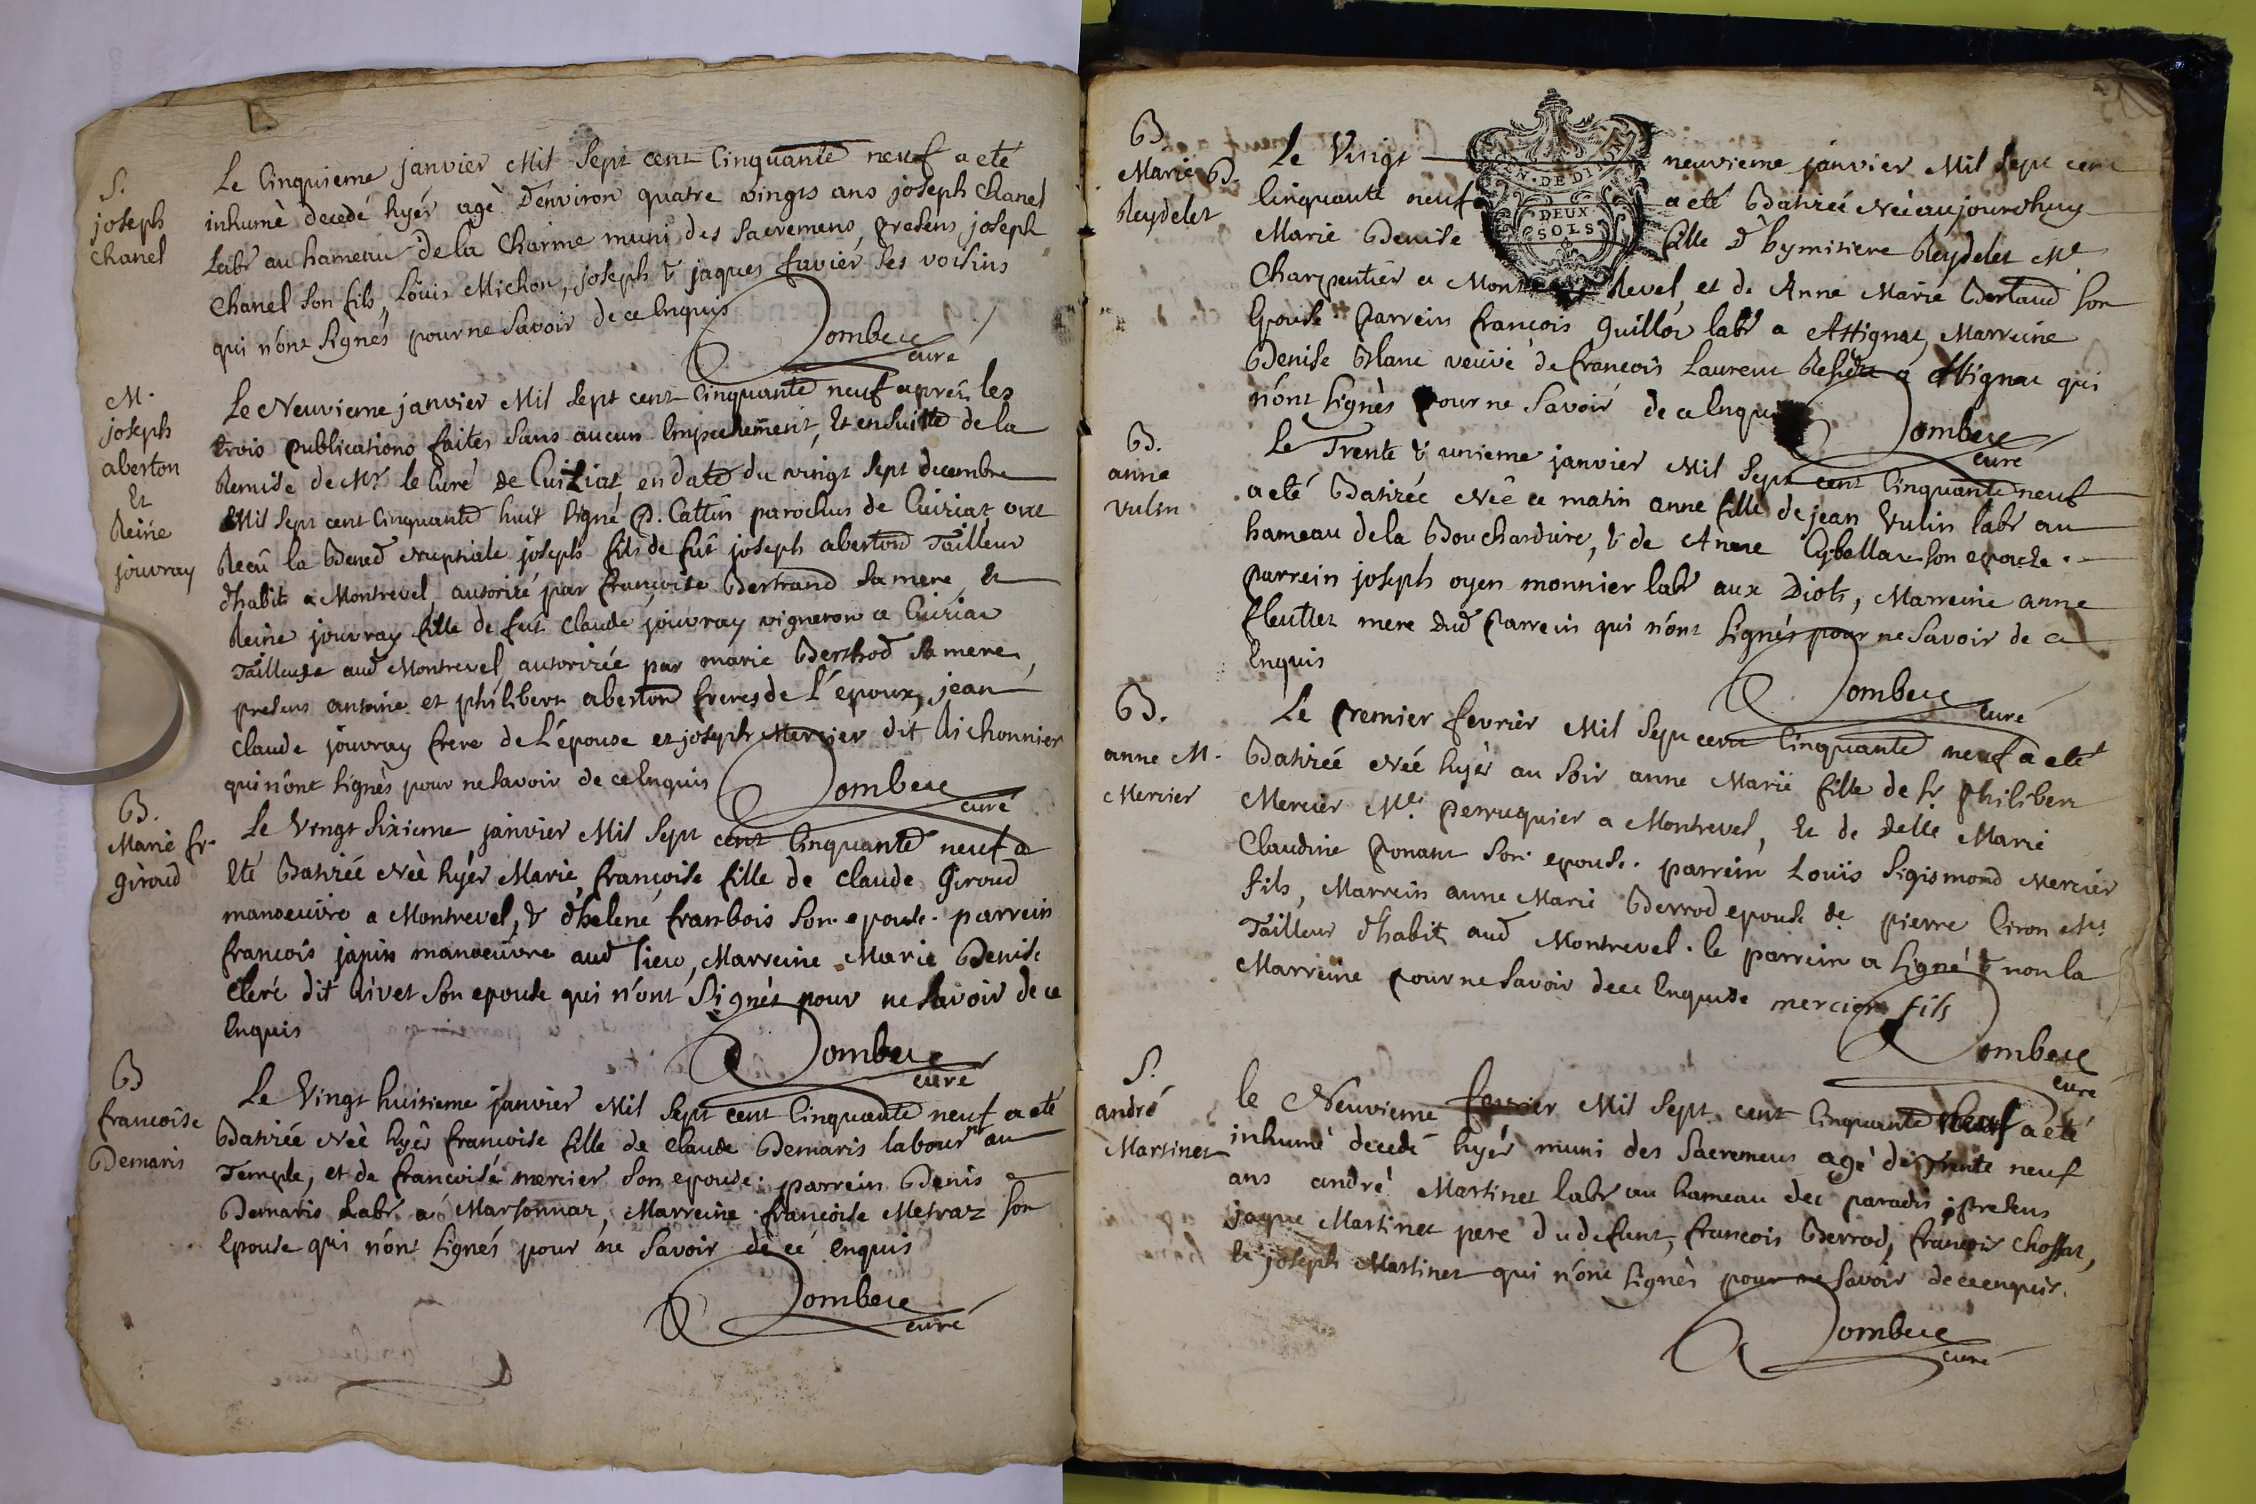 S.
joseph
chanel
Le Cinquieme janvier Mil Sept cent Cinquante neuf a eté
inhumè decedé hyér agè d'environ quatre vingts ans joseph Chanel
Labr au hameau de la Charme muni des Sacremens, presens joseph
Chanel son fils, Loüis Michon, joseph & jaques favier ses voisins
qui n'ont signés pour ne savoir de ce Enquis
Dombeye
curé
M.
joseph
aberton
Et
Reine
jouvray
Le Neuvieme janvier Mil Sept cent Cinquante neuf apres les
trois publications faites sans aucun Empechement, Et ensuitte de la
Remise de Mr le Curé de en date du vingt sept decembre
Mil Sept cent Cinquante huit signé P. Cattin parochus de Cuiriat ont
Reçû la Bened nuptiale joseph fils de fût joseph aberton Tailleur
d'habits a Montrevel autorizé par françoise Bertrand sa mere, Et
Reine jouvray fille de fut Claude jouvray vigneron a Cuiriat
Tailleuse aud Montrevel autorizée par marie Berthod sa mere,
presens antoine et philibert aberton freres de l'epoux, jean
Claude jouvray frere de l'épouse et joseph Mercier dit Michonnier
qui n'ont signés pour ne savoir de ce Enquis
Dombeye
curé
B.
Marie fr.
Giroud
Le Vingt sixieme janvier Mil Sept cent Cinquante neuf a
Eté Batizée née hyér Marie françoise fille de Claude Giroud
manoeuvre a Montrevel, & d'helene frambois son epouse. parrein
françois japin manoeuvre aud lieu, Marreine Marie Denise
Cleré dit Rivet son epouse qui n'ont signés pour ne savoir de ce
Enquis
Dombeye
curé
B
françoise
Demaris
Le Vingt huitieme janvier Mil Sept cent Cinquante neuf a eté
Batizée née hyér françoise fille de Claude Demaris labourr au
Temple, et de françoise mercier son epouse. parrein Denis
Demaris Labr a Marsonnaz, Marreine françoise Mesraz son
Epouse qui n'ont signés pour ne savoir de ce enquis
Dombeye
curé
B.
Marie D.
Reydelet
Le Vingt neuvieme janvier Mil Sept cent
Cinquante neuf a eté Batizée née aujourdhuy
Marie Denise fille d'hymitiere Reydelet Me
Charpentier a Montrevel et de Anne Marie Bertaud son
Epouse. Parrein françois Guillot labr a Attignat, Marreine
Denise Blanc veuve de françois Laurent a Attignat qui
n'ont signés pour ne savoir de ce Enquis
Dombeye
curé
GEN. DE DIJON
DEUX
SOLS
B.
anne
Vulin
Le Trente & unieme janvier Mil Sept cent Cinquante neuf
a eté Batizée née ce matin anne fille de jean Vulin labr au
hameau de la Bouchardiere, & de Anne Cybellau son epouse.
Parrein joseph oyen monnier labr aux Diots, Marreine anne
fleuttet mere dud Parrein qui n'ont signés pour ne savoir de ce
Enquis
Dombeye
curé
B.
anne M.
Mercier
Le Premier fevrier Mil Sept cent Cinquante neuf a eté
Batizée née hyér au soir anne Marie fille de Sr. Philibert
Mercier Me. Perruquier a Montrevel, Et de Delle Marie
Claudine Ponant son epouse. parrein Loüis Sigismond Mercier
fils, Marrein anne Marie Berrod epouse de pierre Ciron Me
Tailleur d'habit aud Montrevel. le parrein a signé & non la
Marreine pour ne savoir de ce Enquise mercier fils
Dombeye
curé
S.
andré
Martinet
le Neuvieme fevrier Mil Sept cent Cinquante neuf a eté
inhumé decedé hyér muni des Sacremens agé de Trente neuf
ans andré Martinet labr au hameau des paradis, presens
jaque Martinet pere du defunt, françois Berrod, françois Chossat,
Et joseph Martinet qui n'ont signés pour ne savoir de ce enquis.
Dombeye
curé